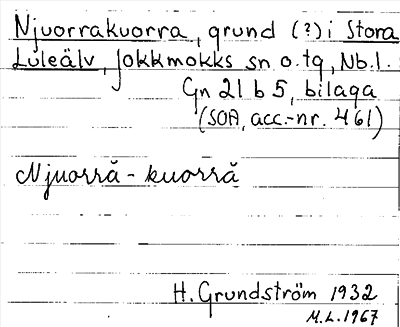 Njuorrakuorra, grund (?) i Stora
Luleälv, Jokkmokks sn o. tg, Nb. l.
Gn 21 b 5, bilaga
(SOA, acc.-nr. 461)
Njuorră - kuorră
H. Grundström 1932
M.L. 1967